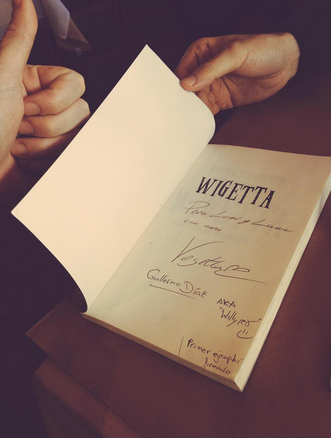 WIGETTA
Para y
con amor
Vegetta
Guillermo Díaz
AKA
"Willyrex"
Primer ejemplar
firmado